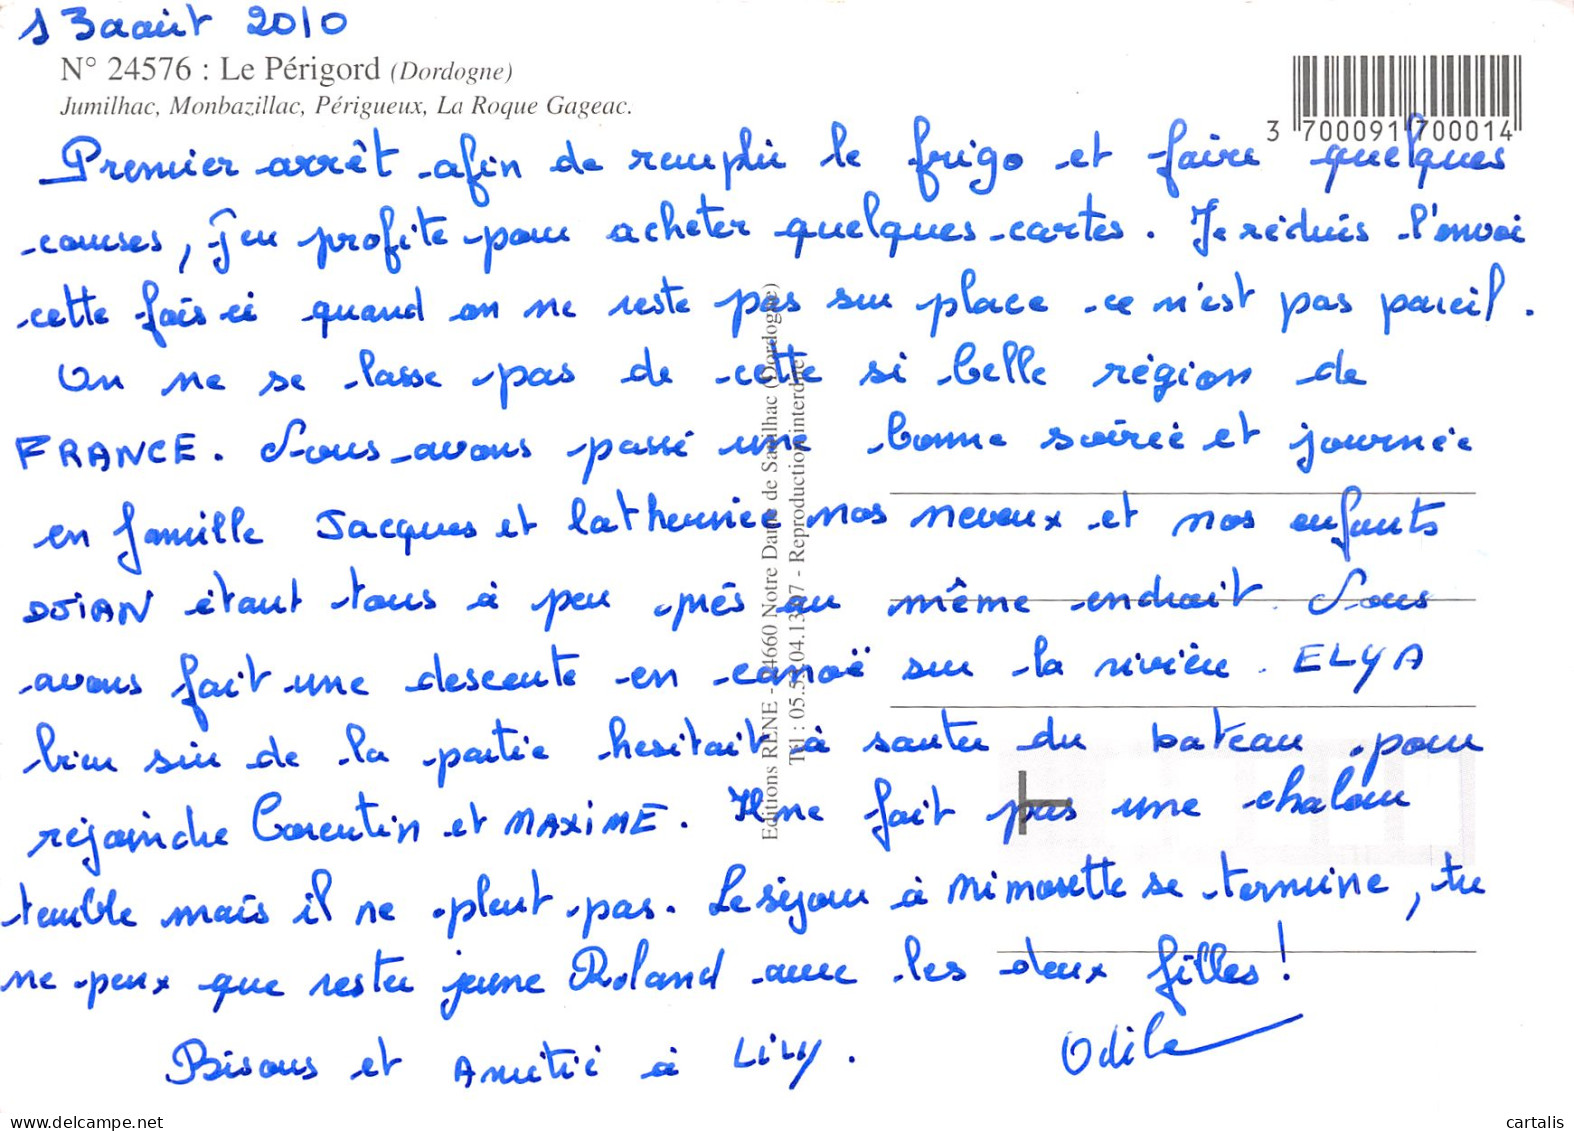 13 aaoút 2010
N° 24576 : Le Périgord (Dordogne)
Jumilhac, Monbazillac, Périgueux, La Roque Gageac.
3 700091 700014
Premier arrêt afin de remplir le frigo et faire quelques
courses, j'en profite pour acheter quelques cartes. Je réduis l'envoi
cette fois ci quand on ne reste pas sur place ce n'est pas pareil.
On ne se lasse pas de cette si belle région de
FRANCE. Nous avons passé une bonne soirée et journée
en famille Jacques et Catherine nos neveux et nos enfants
DJIAN étant tous à peu près au même endroit. Nous
avons fait une descente en canoë sur la rivière. ELYA
bien sur de la partie hesitait à sauter du bateau pour
rejoindre Corentin et MAXIME. Il ne fait pas une chaleur
terrible mais il ne pleut pas. Le séjour à Mimosette se termine, tu
ne peux que rester jeune Roland avec les deux filles !
Bisous et Amitié à LiLy.
Odile
Editions RENE - 24660 Notre Dame de Sanilhac (Dordogne)
Tél : 05.53.04.13.07 - Reproduction interdite
delcampe.net
cartalis